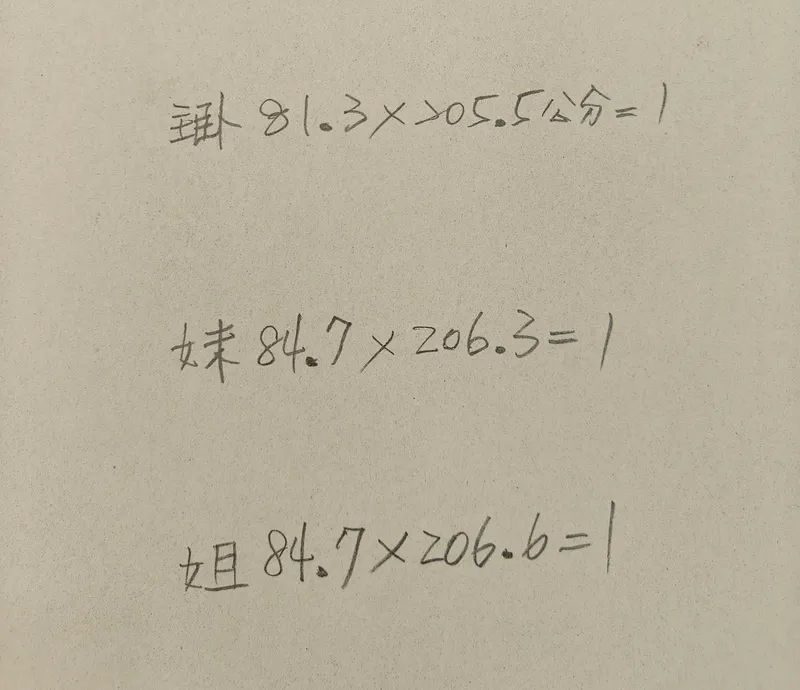 主卧 81.3×205.5公分=1
妹 84.7×206.3=1
姐 84.7×206.6=1